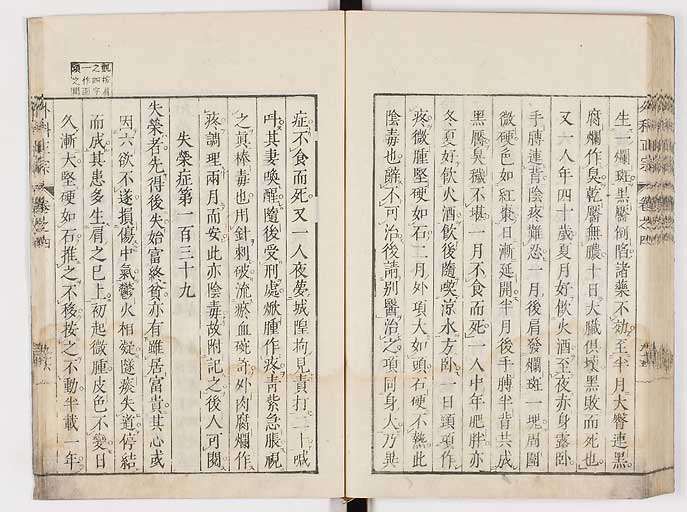 生一爛斑黑黶倒陷諸藥不効至半月大臀連黑
腐爛作臭乾黶無膿十日大臟俱壞黑敗而死也
又一人年四十歲夏月好飲火酒至夜亦身露卧
手膊連背陰疼難忍一月後肩發爛斑一塊周圍
微硬色如紅棗日漸延開半月後千膊半背共成
黑黶臭穢不堪一月不食而死一人中年肥胖亦
冬夏好飲火酒飲後隨喫涼水方卧一日頭項作
疼微腫堅硬如石二月外項大如頭石硬不熱此
陰毒也辭不可治後請別醫治之項同身大乃與
症不食而死又一人夜夢城隍拘見責打二十喊
叫其妻喚醒隨後受刑處焮腫作疼青紫急脹視
之真棒毒也用針刺破流瘀血斑許外肉腐爛作
疼調理兩月而安此亦陰毒故附記之後人可閱
失榮症第一百三十九
失榮者先得後失始富終貧亦有雖居富貴其心或
因六欲不遂損傷中氣鬱火相凝隧痰失道停結
而成其患多生肩之已上初起微腫皮色不變日
久漸大堅硬如石推之不移按之不動半載一年
外科正宗
卷之四
外科正宗
卷之四